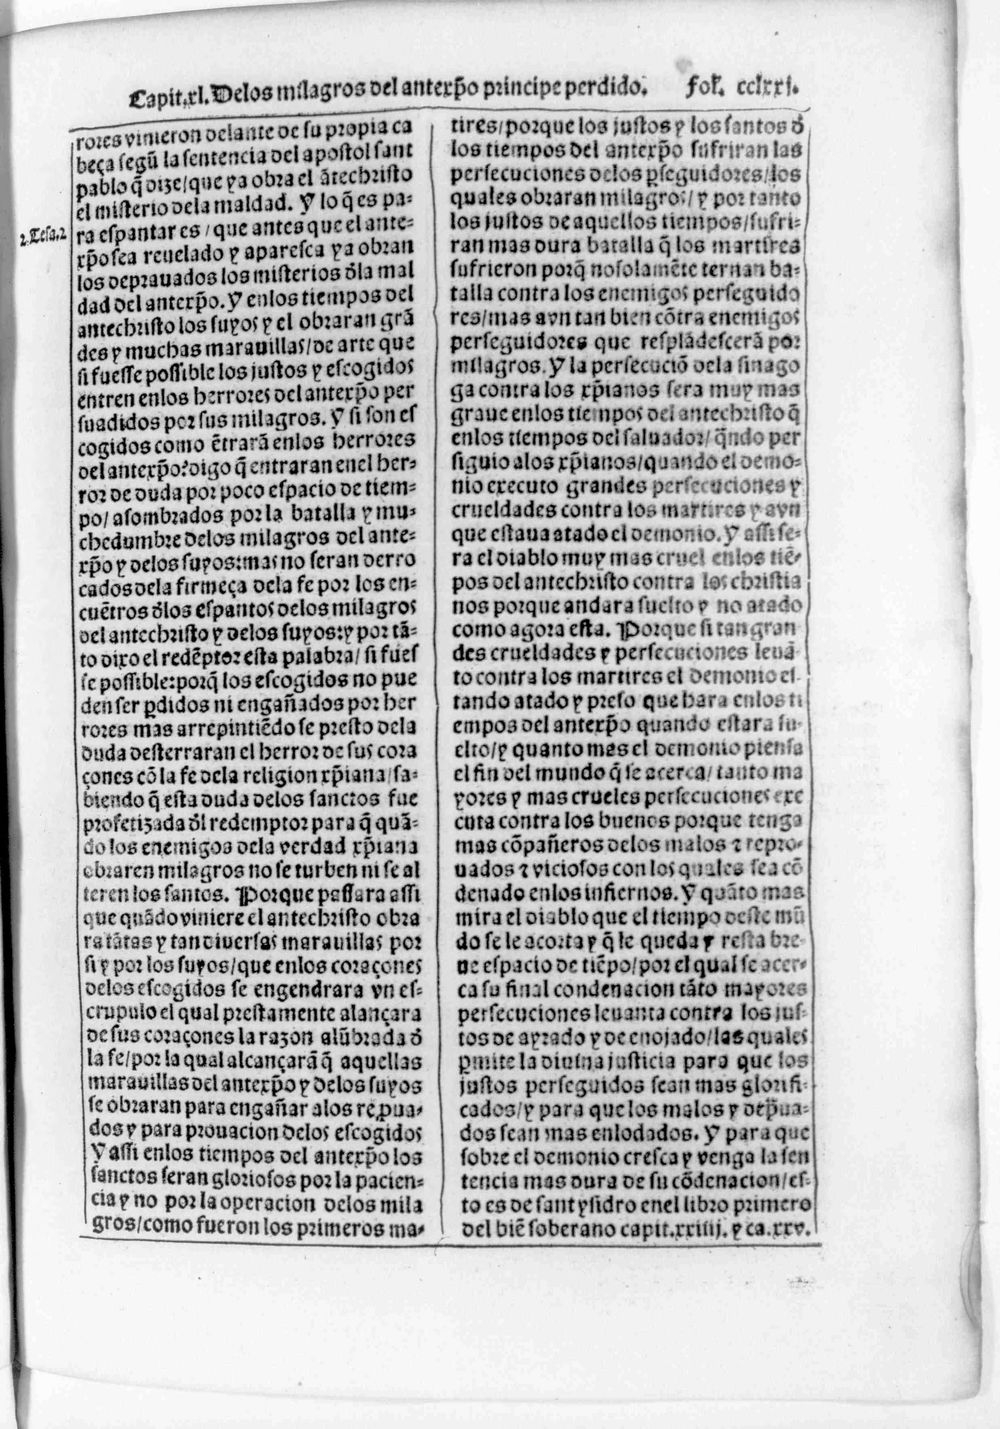 Capit.xl. Delos milagros del antexp̃o principe perdido. fol. cclxxj.
rores vinieron delante de su propia ca
beça segũ la sentencia del apostol sant
pablo q̃ dize/que ya obra el ãtechristo
el misterio dela maldad. Y lo q̃ es pa-
2.Tesa.2
ra espantar es/que antes que el ante-
xp̃o sea reuelado y aparesca ya obran
los deprauados los misterios d̃la mal
dad del antexp̃o. Y enlos tiempos del
antechristo los suyos y el obraran grã
des y muchas marauillas/de arte que
si fuesse possible los justos y escogidos
entren enlos herrores del antexp̃o per
suadidos por sus milagros. Y si son es
cogidos como ẽtrarã enlos herrores
del antexp̃o? digo q̃ entraran enel her-
ror de duda por poco espacio de tiem-
po/asombrados por la batalla y mu-
chedumbre delos milagros del ante-
xp̃o y delos suyos: mas no seran derro
cados dela firmeça dela fe por los en-
cuẽtros d̃los espantos delos milagros
del antechristo y delos suyos: y por tã-
to dixo el redẽptor esta palabra/si fues
se possible: porq̃ los escogidos no pue
den ser ꝑdidos ni engañados por her
rores mas arrepintiẽdo se presto dela
duda desterraran el herror de sus cora
çones cõ la fe dela religion xp̃iana/sa-
biendo q̃ esta duda delos sanctos fue
profetizada d̃l redemptor para q̃ quã-
do los enemigos dela verdad xp̃iana
obraren milagros no se turben ni se al
teren los santos. Porque passara assi
que quãdo viniere el antechristo obra
ra tãtas y tan diuersas marauillas por
si y por los suyos/que enlos coraçones
delos escogidos se engendrara vn es-
crupulo el qual prestamente alançara
de sus coraçones la razon alũbrada d̃
la fe/por la qual alcançarã q̃ aquellas
marauillas del antexp̃o y delos suyos
se obraran para engañar alos rep̃ua-
dos y para prouacion delos escogidos
Y assi enlos tiempos del antexp̃o los
sanctos seran gloriosos por la pacien-
cia y no por la operacion delos mila
gros/como fueron los primeros ma-
tires/porque los justos y los santos d̃
los tiempos del antexp̃o sufriran las
persecuciones delos ꝑseguidores/los
quales obraran milagros/y por tanto
los justos de aquellos tiempos/sufri-
ran mas dura batalla q̃ los martires
sufrieron porq̃ no solamẽte ternan ba-
talla contra los enemigos perseguido
res/mas avn tan bien cõtra enemigos
perseguidores que resplãdescerã por
milagros. Y la persecuciõ dela sinago
ga contra los xp̃ianos sera muy mas
graue enlos tiempos del antechristo q̃
enlos tiempos del saluador/q̃ndo per
siguio alos xp̃ianos/quando el demo-
nio executo grandes persecuciones y
crueldades contra los martires y avn
que estaua atado el demonio. Y assi se-
ra el diablo muy mas cruel enlos tiẽ-
pos del antechristo contra los christia
nos porque andara suelto y no atado
como agora esta. Porque si tan gran
des crueldades y persecuciones leuã
to contra los martires el demonio es
tando atado y preso que hara enlos ti
empos del antexp̃o quando estara su-
elto/y quanto mas el demonio piensa
el fin del mundo q̃ se acerca/tanto ma
yores y mas crueles persecuciones exe
cuta contra los buenos porque tenga
mas cõpañeros delos malos ⁊ repro-
uados ⁊ viciosos con los quales sea cõ
denado enlos infiernos. Y quãto mas
mira el diablo que el tiempo deste mũ
do se le acorta y q̃ le queda y resta bre-
ue espacio de tiẽpo/por el qual se acer-
ca su final condenacion tãto mayores
persecuciones leuanta contra los jus-
tos de ayrado y de enojado/las quales
ꝑmite la diuina justicia para que los
justos perseguidos sean mas glorifi-
cados/y para que los malos y dep̃ua-
dos sean mas enlodados. Y para que
sobre el demonio cresca y venga la sen
tencia mas dura de su cõdenacion/es-
to es de sant ysidro enel libro primero
del biẽ soberano capit.xxiiij. y ca.xxv.